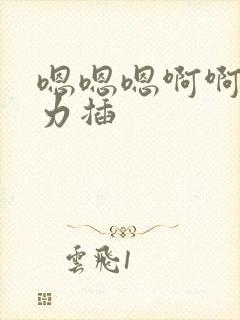 嗯嗯嗯啊啊
力插
雲飛1